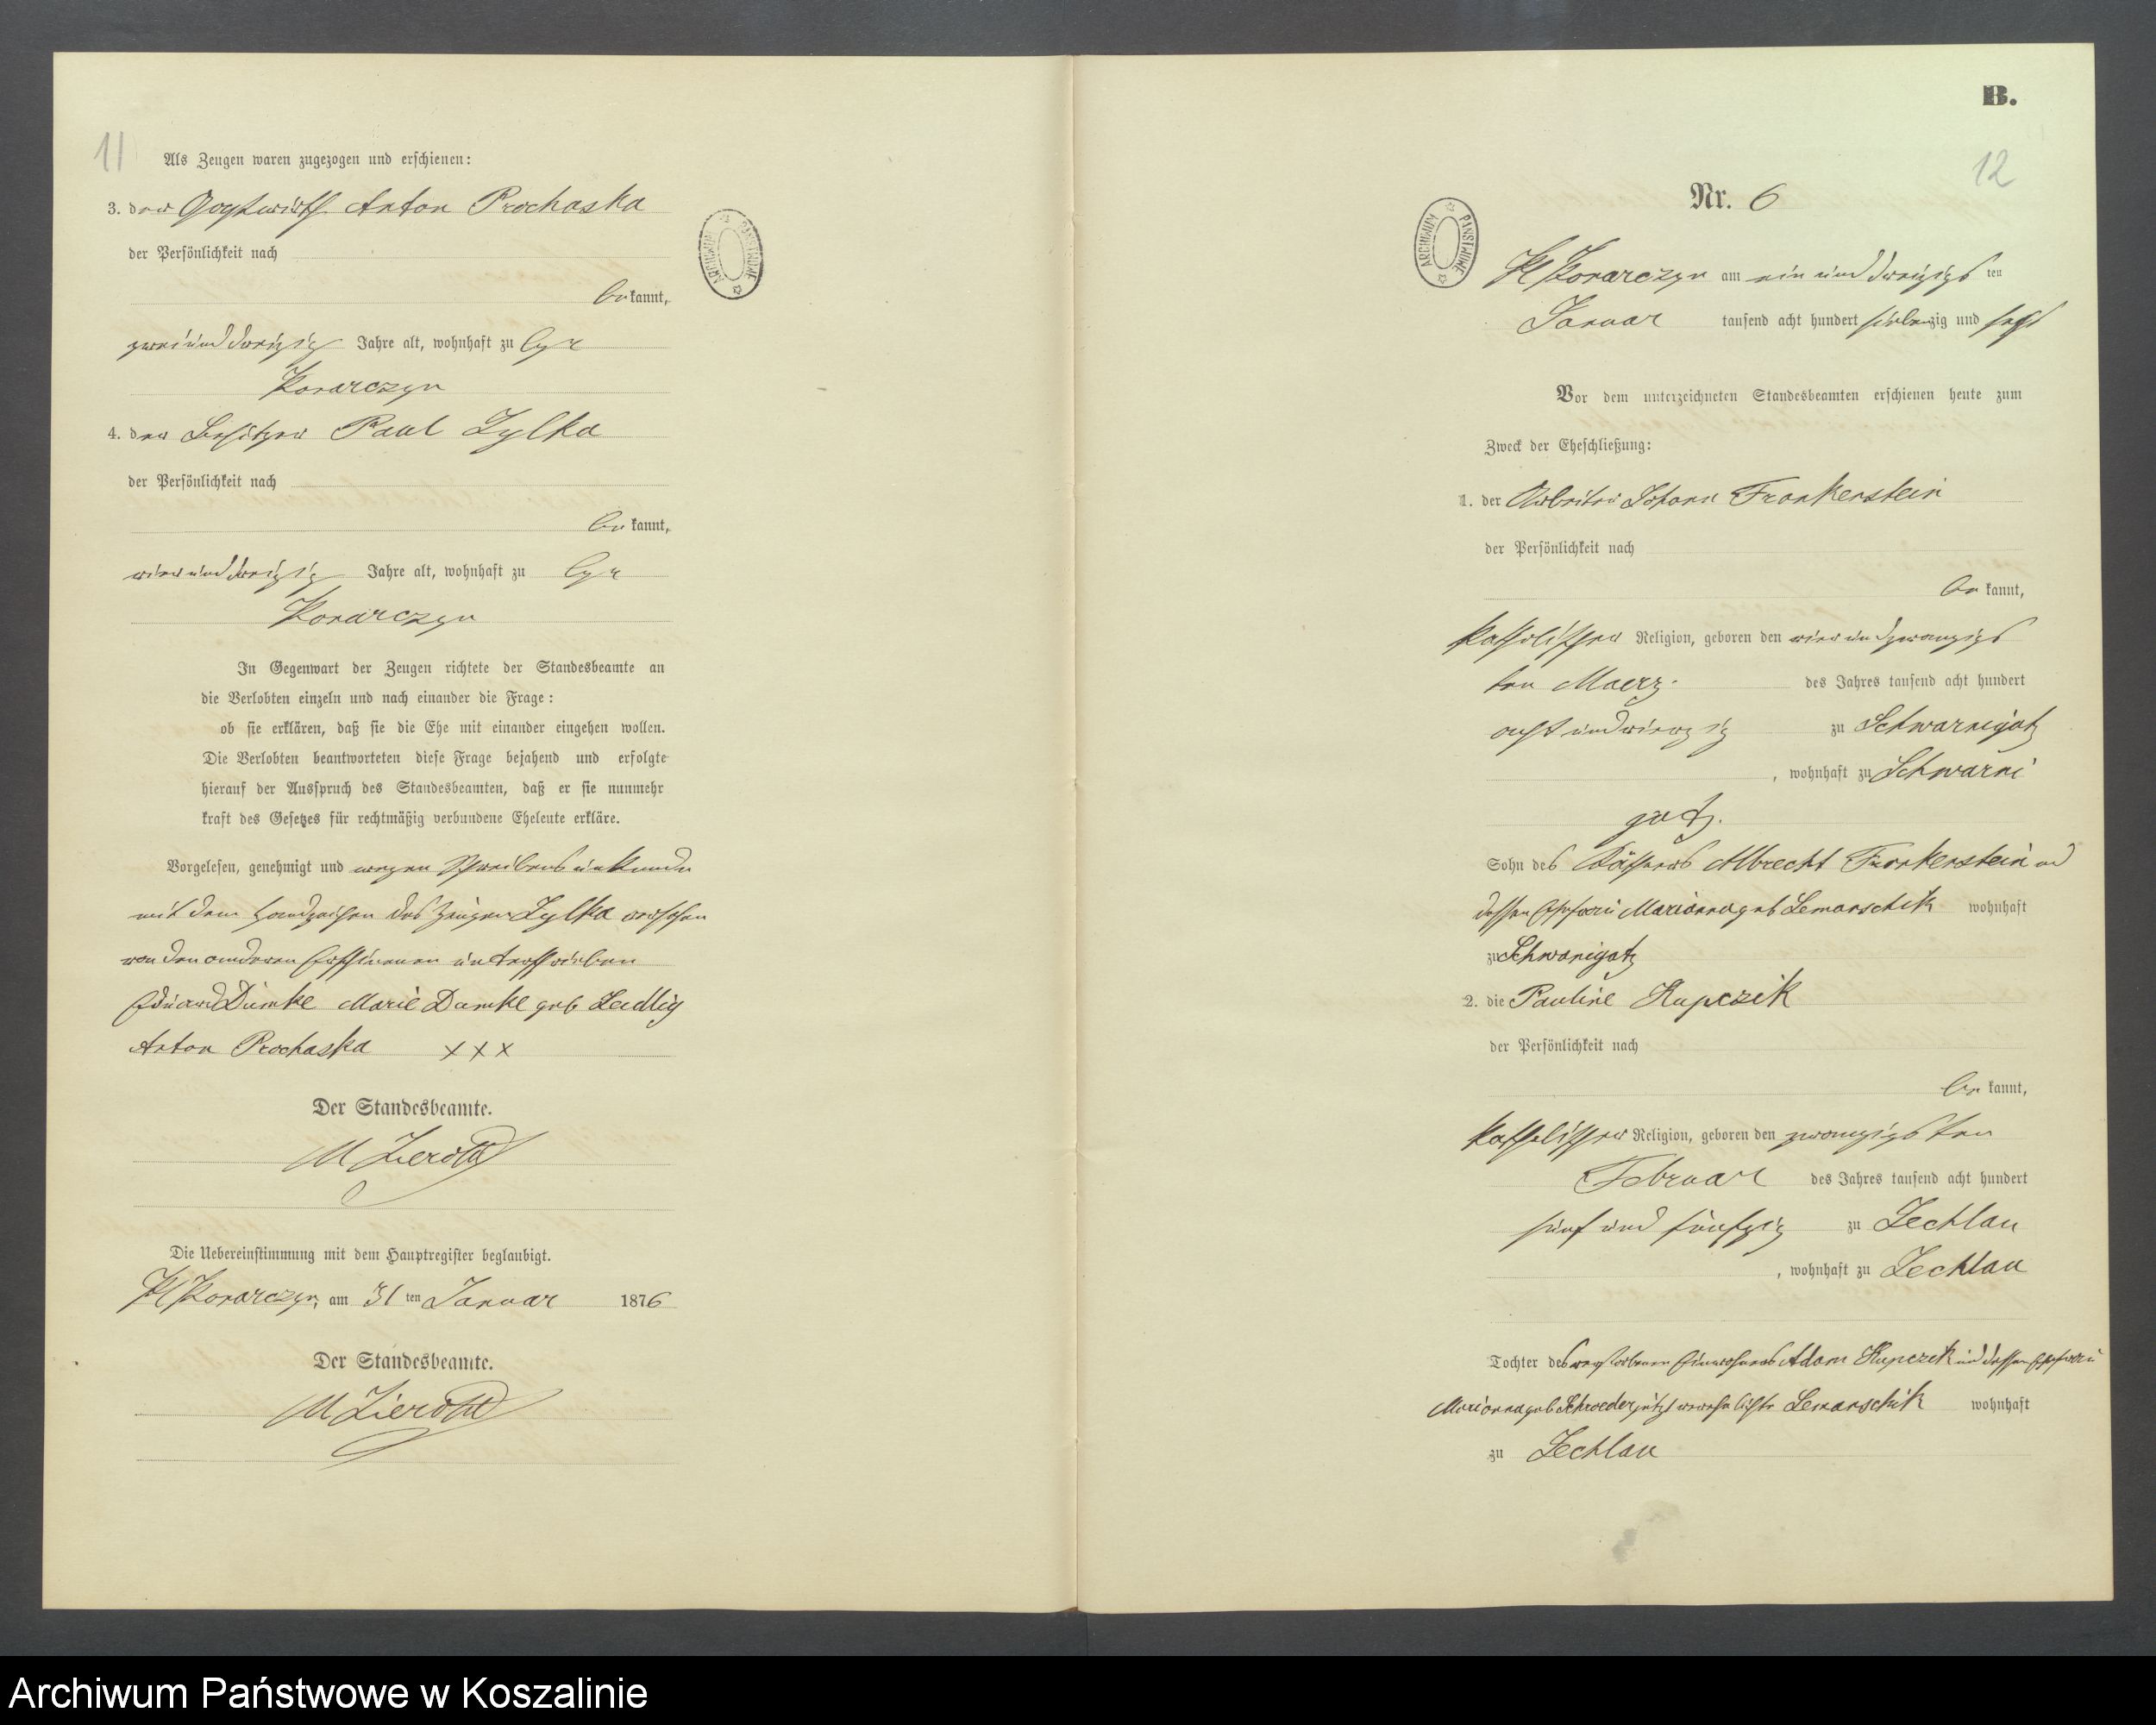 11
Als Zeugen waren zugezogen und erschienen:
3. der Gastwirth Anton Prochaska
der Persönlichkeit nach
bekannt,
zweiunddreizig Jahre alt, wohnhaft zu
Konarczyn
4. der Besitzer Paul Zylka
der Persönlichkeit nach
bekannt,
vierunddreizig Jahre alt, wohnhaft zu
Konarczyn
In Gegenwart der Zeugen richtete der Standesbeamte an
die Verlobten einzeln und nach einander die Frage:
ob sie erklären, daß sie die Ehe mit einander eingehen wollen.
Die Verlobten beantworteten diese Frage bejahend und erfolgte
hierauf der Ausspruch des Standesbeamten, daß er sie nunmehr
kraft des Gesetzes für rechtmäßig verbundene Eheleute erkläre.
Vorgelesen, genehmigt und wegen Schreibensunkunde
mit dem Handzeichen des Zeugen Zylka versehen
von den anderen Erschienenen unterschrieben
Eduard Dumke Marie Dumke geb
Anton Prochaska xxx
Der Standesbeamte.
M Zieroth
Die Uebereinstimmung mit dem Hauptregister beglaubigt.
Kl Konarczyn, am 31 ten Januar 1876
Der Standesbeamte.
M Zieroth
ARCHIWUM PAŃSTWOWE
B.
12
Nr. 6
ARCHIWUM PAŃSTWOWE
Kl Konarczyn am ein und dreizigs ten
Januar tausend acht hundert siebenzig und sechs
Vor dem unterzeichneten Standesbeamten erschienen heute zum
Zweck der Eheschließung:
1. der Arbeiter Johann Frankenstein
der Persönlichkeit nach
bekannt,
katholischer Religion, geboren den vierundzwanzigs
ten Maerz des Jahres tausend acht hundert
acht und vierzig zu Schwarnigatz
, wohnhaft zu Schwarni
gatz.
Sohn des Albrecht Frankenstein und
dessen Ehefrau Marianna geb Lemanschik wohnhaft
zu Schwanigatz
2. die Pauline Kupczik
der Persönlichkeit nach
bekannt,
katholischer Religion, geboren den zwanzigsten
Februar des Jahres tausend acht hundert
fünf und fünfzig zu Zechlau
, wohnhaft zu Zechlau
Tochter des verstorbenen Einwohners Adam Kupczik und dessen Ehefrau
Marianna geb Schroeder jetzt verehelichte Lemanschik wohnhaft
zu Zechlau
Archiwum Państwowe w Koszalinie